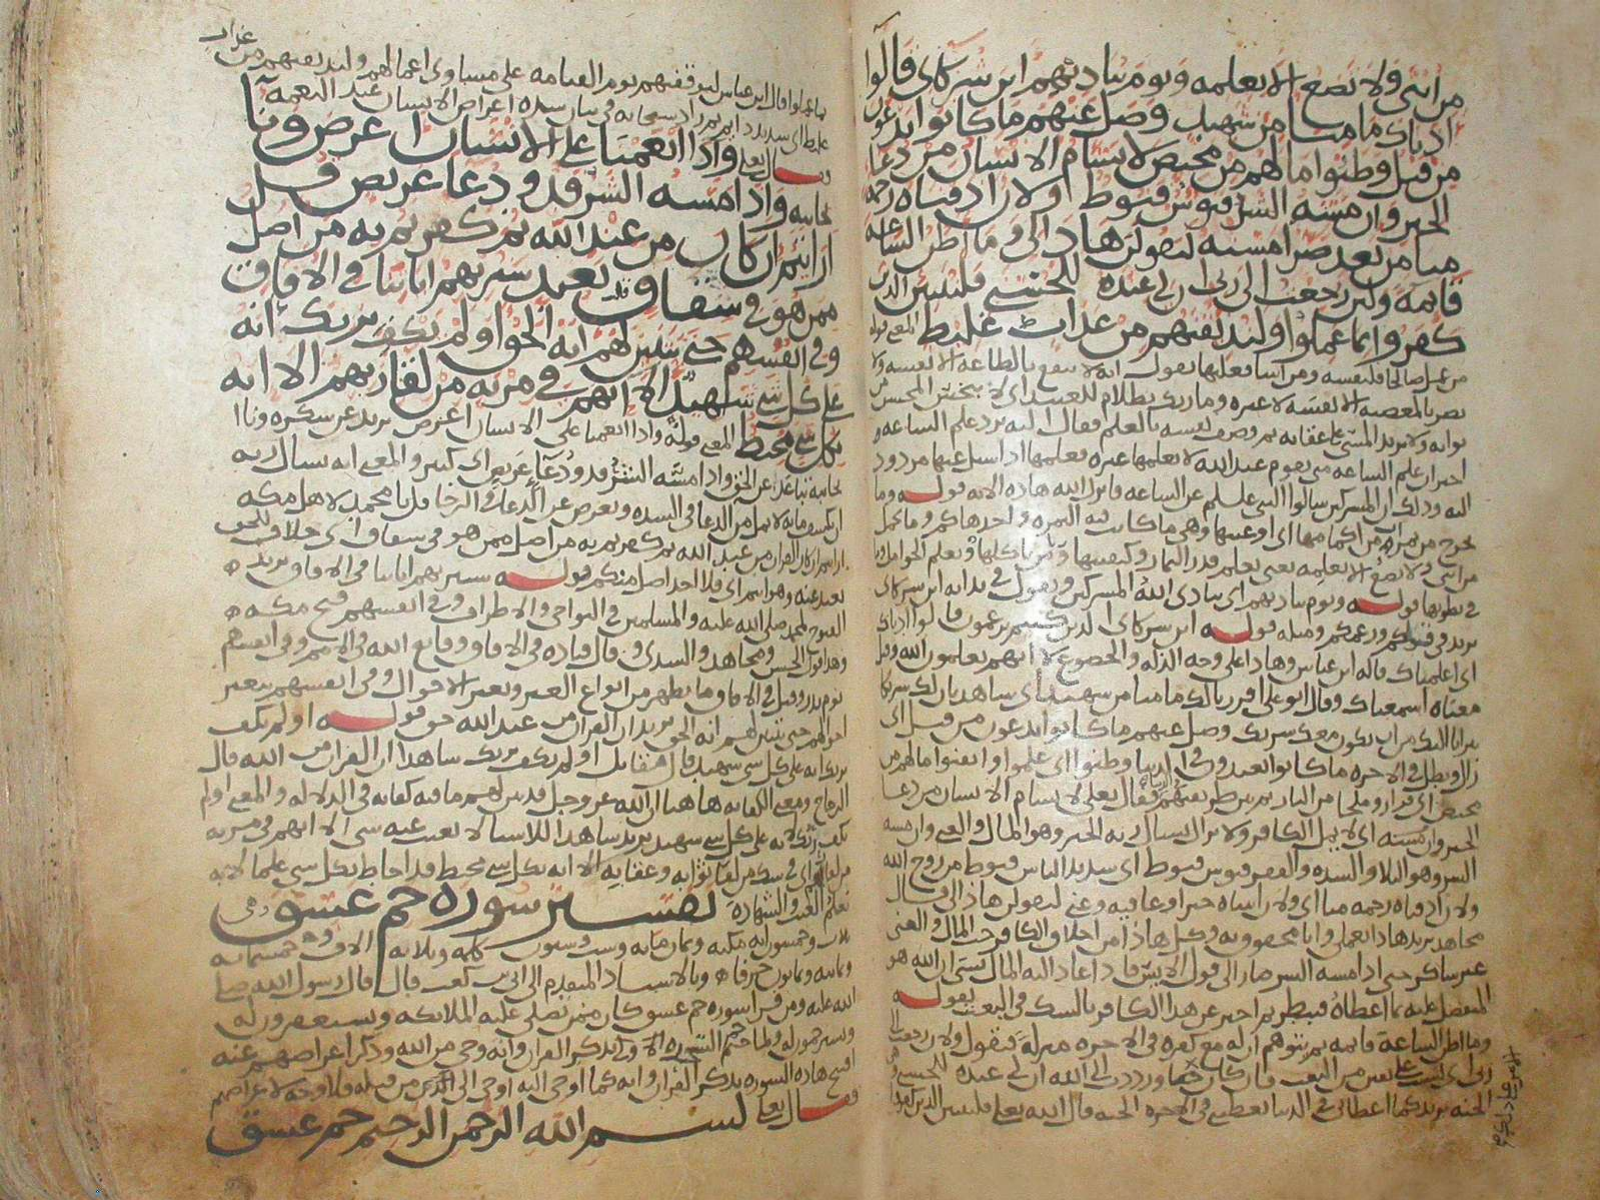 من انثى ولا تضع الا بعلمه ويوم يناديهم اين شركاى قالوا
اذناك ما منا من شهيد وضل عنهم ما كانوا يدعون
من قبل وظنوا ما لهم من محيص لا يسام الانسان من دعا
الخير وان مسه الشر فيوس قنوط ولان اذقناه رحمه
منا من بعد ضرا مسته ليقولن هاذا لى وما اظن الساعه
قايمه ولين رجعت الى ربى ان لى عنده للحسنى فلننبين الذين
كفروا بما عملوا ولنذيقنهم من عذاب غليظ المعنى قوله
من عمل صالحا فلنفسه ومن اسا فعليها يقول انه لا ينفع بالطاعه الا نفسه ولا
يضر بالمعصيه الا نفسه لا غيره وما ربك بظلام للعبيد اى لا يبخس المحسن من
ثوابه ولا يزيد المسى على عقابه ثم وصف نفسه بالعلم فقال اليه يرد علم الساعه
اخبر ان علم الساعه متى يقوم عند الله لا يعلمها غيره فعلمها اذا سيل عنها مردود
اليه وذلك ان المشركين سالوا النبى عن الساعه فانزل الله هاذه الايه قوله وما
تخرج من ثمرات من اكمامها اى اوعيتها وهى ما كانت فيه الثمره واحدها كم وما تحمل
من انثى ولا تضع الا بعلمه يعنى يعلم قدر الثمار وكيفيتها ومن ياكلها ويعلم الحوامل
فى بطونها قوله ويوم يناديهم اى ينادى الله المشركين ويقول فى ندايه اين شركاى
يريد فى قولكم وزعمكم ومثله قوله اين شركاى الذين كنتم تزعمون قالوا اذناك
اى اعلمناك قاله ابن عباس وهاذا على وجه الذله والخضوع لانهم يعلمون ان الله
معناه اسمعناك وقال ابو على اقررنا لك ما منا من شهيد اى شاهد بان لك شريكا
تبرانا اليك من ان يكون معك شريك وضل عنهم ما كانوا يدعون من قبل اى
زال وبطل فى الاخره ما كانوا يعبدون فى الدنيا وظنوا اى علموا وايقنوا ما لهم من
محيص اى فرار وملجا من النار فقال تعلى لا يسام الانسان من دعا
الخير اى لا يمل الكافر ولا يزال يسال ربه الخير وهو المال والغنى وان مسه
الشر وهو البلا والشده والفقر فيوس قنوط اى شديد الياس قنوط من روح الله
ولان اذقناه رحمه منا اى ولان اتيناه خيرا وعافيه وغنى ليقولن هاذا لى قال
مجاهد يريد هاذا بعملى وانا محقوق به وكل هاذا من اخلاق الكافر حب المال والغنى
غير شاكر حتى اذا مسه الشر صار الى قول الايس فاذا عاد اليه المال نسى ان الله هو
المتفضل عليه بما اعطاه فبطر ثم اخبر عن هذا الكافر بالشك فى البعث بقوله
وما اظن الساعه قايمه ثم يتوهم ان له مع كفره فى الاخره منزله فيقول ولان رجعت الى
ربى اى لست على يقين من البعث فان كان حقا ورددت الى الله ان لى عنده للحسنى
الجنه يريد كما اعطانى فى الدنيا يعطينى فى الاخره الجنه قال الله تعلى فلننبين الذين كفروا
بما عملوا قال ابن عباس ليوقفنهم يوم القيامه على مساوى اعمالهم ولنذيقنهم من عذاب
غليظ اى شديد ثم زاد سبحانه فى بيان شده اعراض الانسان عند النعمه
فقال تعلى واذا انعمنا على الانسان اعرض ونآ
بجانبه واذا مسه الشر فذو دعا عريض قل
ارايتم ان كان من عند الله ثم كفرتم به من اضل
ممن هو فى شقاق بعيد سنريهم اياتنا فى الافاق
وفى انفسهم حتى يتبين لهم انه الحق اولم يكف بربك انه
على كل شى شهيد الا انهم فى مريه من لقا ربهم الا انه
بكل شى محيط المعنى قوله واذا انعمنا على الانسان اعرض يريد عن شكره ونا
بجانبه تباعد عن الحق واذا مسه الشر فذو دعا عريض اى كثير والمعنى انه يسال ربه
ان يكشف ما به لا يمل من الدعا فى الشده ويعرض عن الدعا فى الرخا قل يا محمد لاهل مكه
ارايتم ان كان القران من عند الله ثم كفرتم به من اضل ممن هو فى شقاق اى خلاف للحق
بعيد عنه وهو انتم اى فلا احد اضل منكم قوله سنريهم اياتنا فى الافاق يريد
الفتوح لمحمد صلى الله عليه والمسلمين فى النواحى والاطراف وفى انفسهم فتح مكه
وهذا قول الحسن ومجاهد والسدى وقال قتاده فى الافاق وقايع الله فى الامم وفى انفسهم
يوم بدر وقيل فى الافاق ما يظهر من انواع العبر وتغير الاحوال وفى انفسهم بتغير
احوالهم حتى يتبين لهم انه الحق يريد ان القران من عند الله حق قوله اولم يكف
بربك انه على كل شى شهيد قال مقاتل اولم يكف بربك شاهدا ان القران من الله قال
الزجاج ومعنى الكفايه هاهنا ان الله عز وجل قد بين لهم ما فيه كفايه فى الدلاله والمعنى اولم
يكف بربك لانه على كل شى شهيد يريد شاهدا للاشيا لا يغيب عنه شى الا انهم فى مريه
من لقا ربهم اى فى شك من لقا ثوابه وعقابه الا انه بكل شى محيط قد احاط بكل شى علما لانه
تعلم الغيب والشهاده تفسير سوره حم عسق وهى
ثلاث وخمسون ايه مكيه وثمان مايه وست وستون كلمه وثلاثه الاف وخمسمايه
وثمانيه وثمانون حرفا وبالاسناد المتقدم الى ابى بن كعب قال قال رسول الله صلى
الله عليه ومن قرا سوره حم عسق كان ممن تصلى عليه الملايكه ويستغفرون له
ويسترحمون له ولما ختم السوره الاولى بذكر القران وانه وحى من الله وذكر اعراضهم عنه
افتتح هاذه السوره بذكر القران وانه كما اوحى اليه اوحى الى الذين من قبله فلا وجه لاعراضهم
فقال تعلى بسم الله الرحمن الرحيم حم عسق